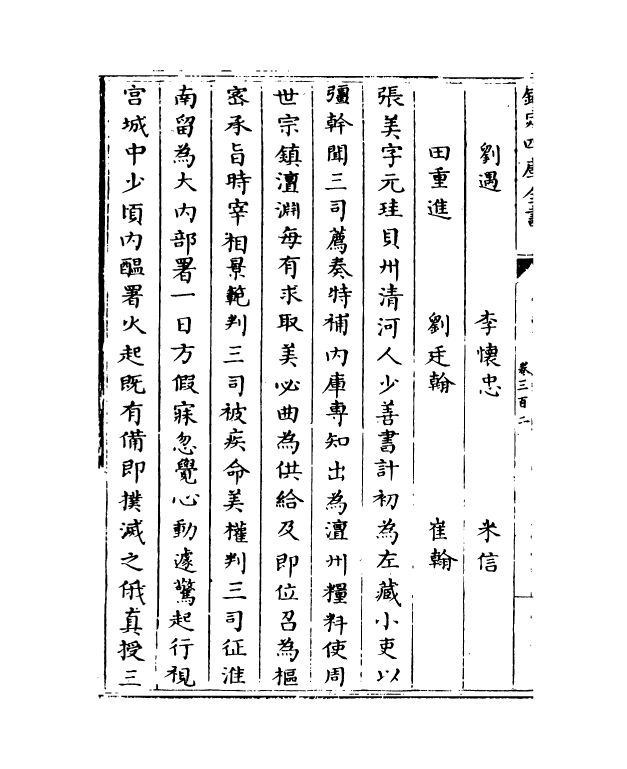 欽定四庫全書
卷三百二
劉遇　李懷忠　米信
田重進　劉廷翰　崔翰
張美字元珪貝州清河人少善書計初為左藏小吏以
彊幹聞三司薦奏特補內庫專知出為澶州糧料使周
世宗鎮澶淵每有求取美必曲為供給及即位召為樞
宻承旨時宰相景範判三司被疾命美權判三司征淮
南留為大內部署一日方假寐忽覺心動遽驚起行視
宫城中少頃內醖署火起既有備即撲滅之俄真授三